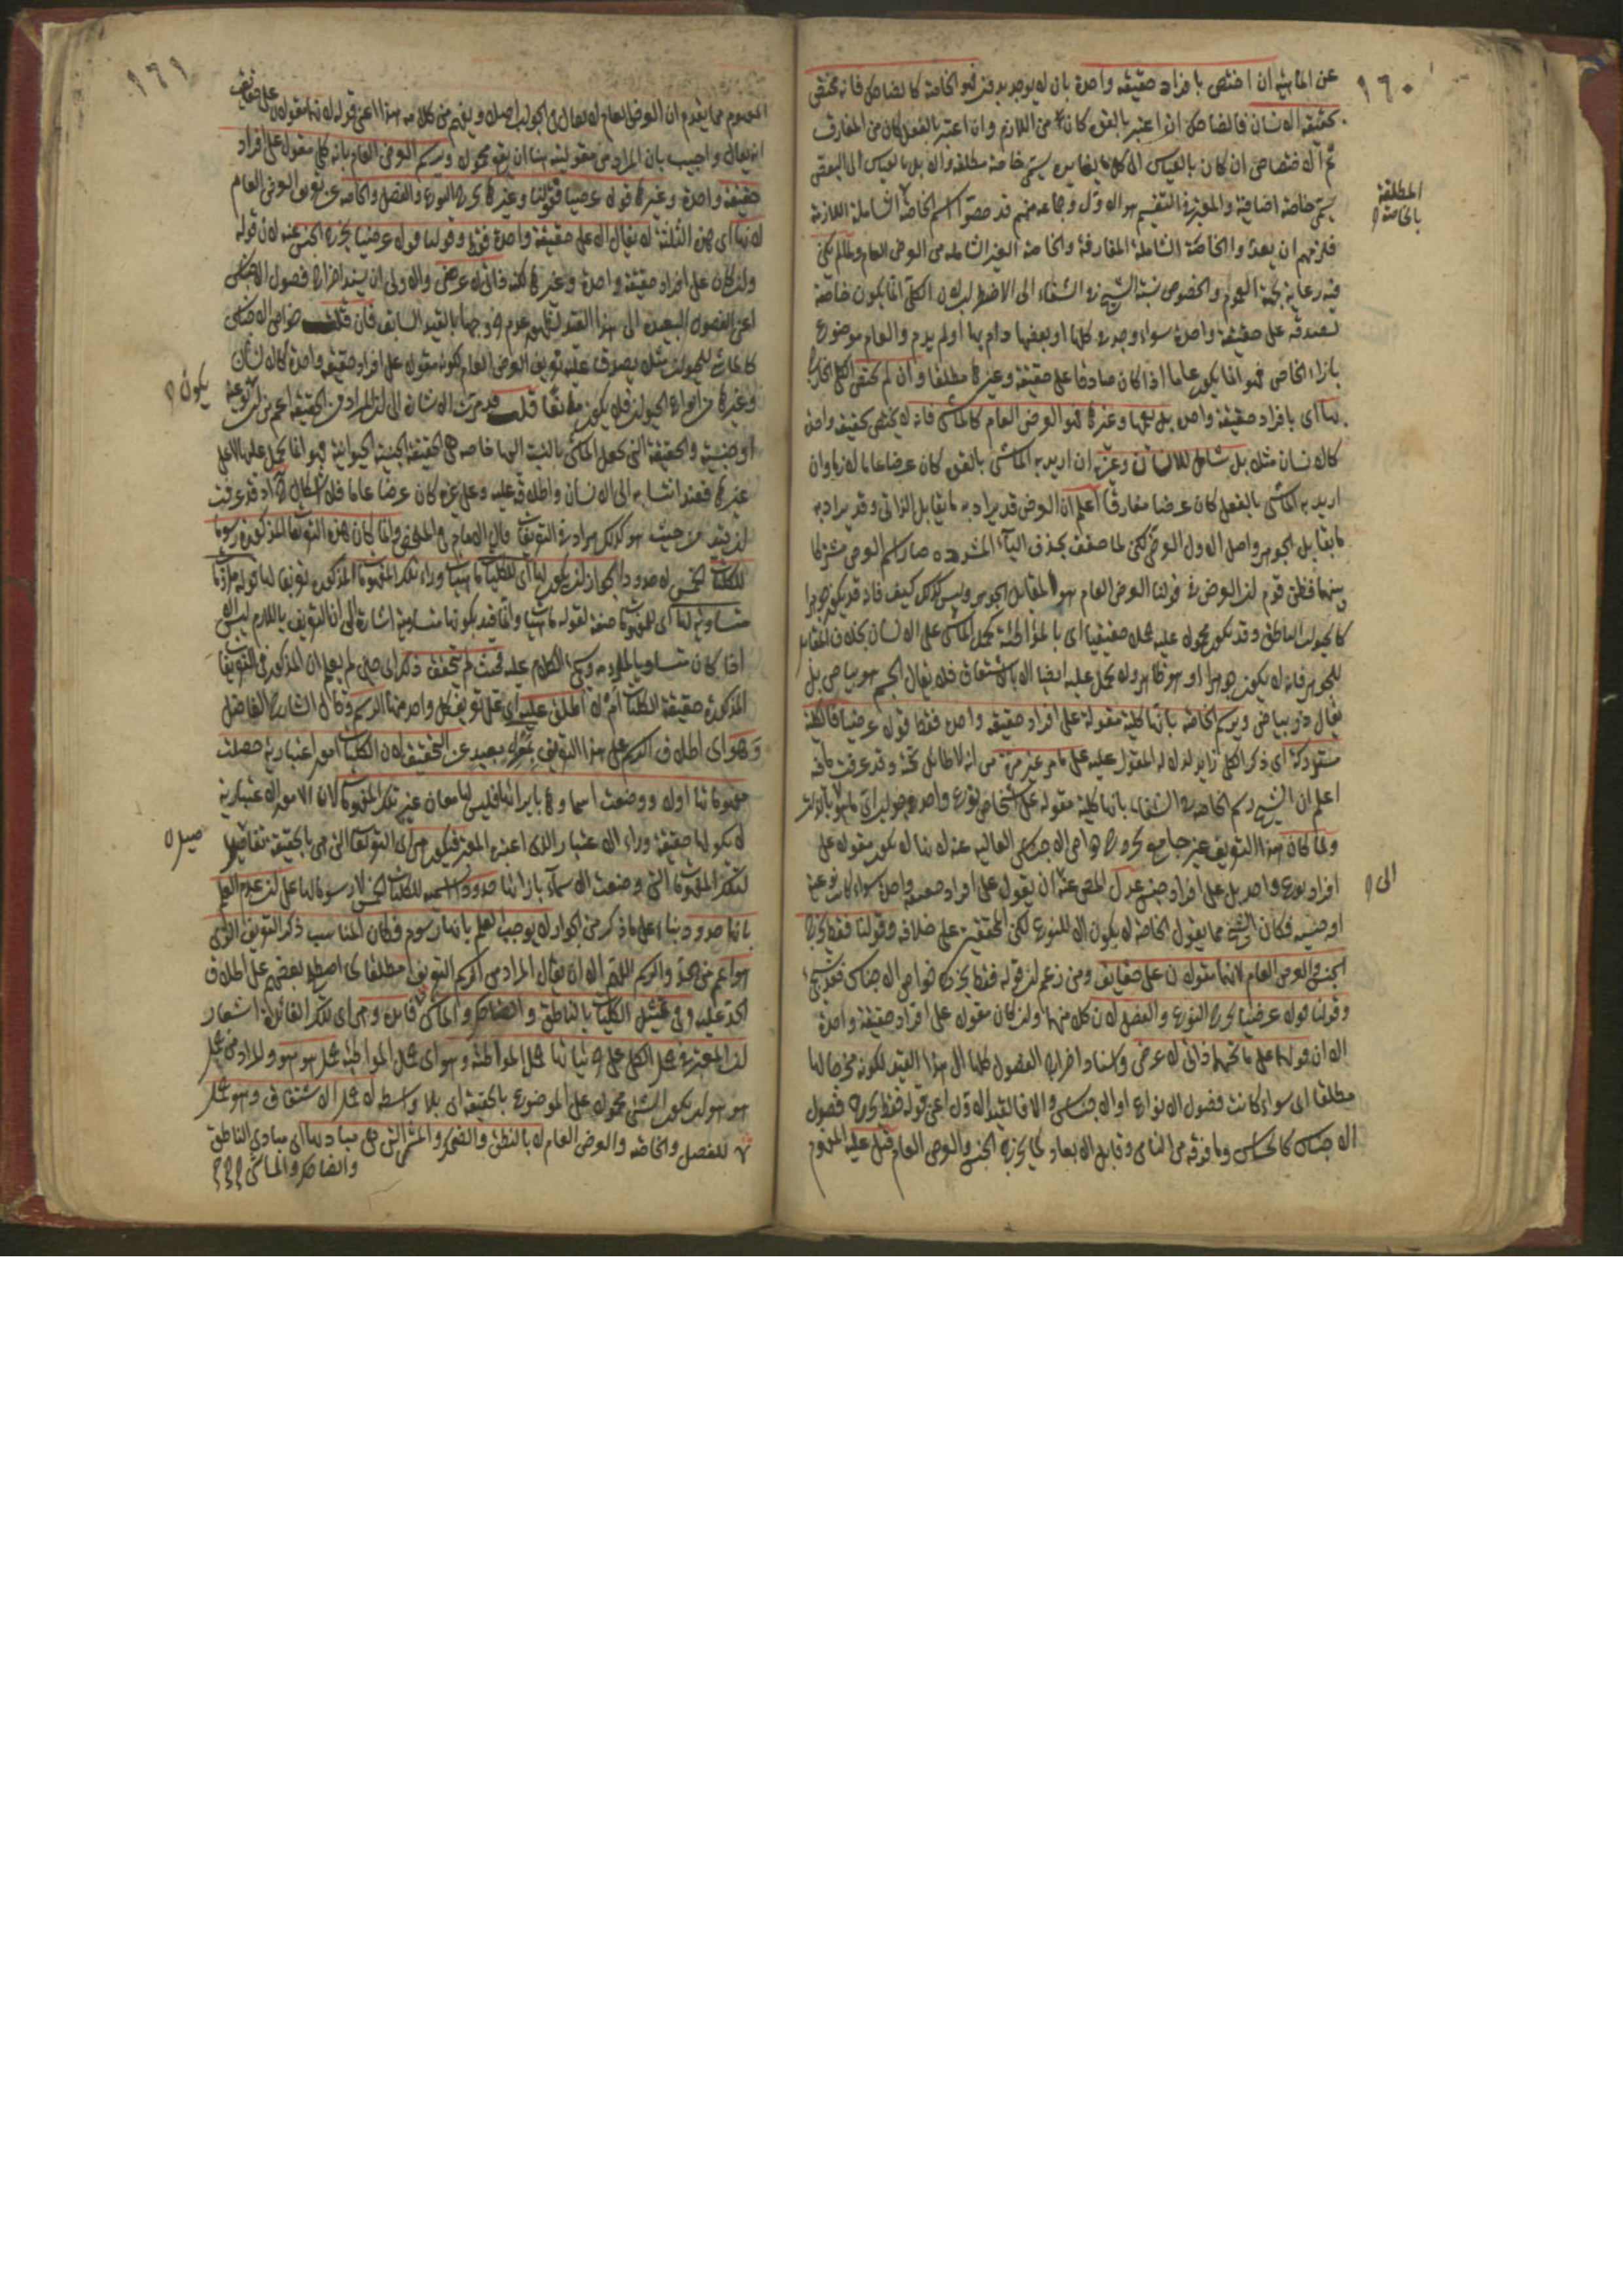 ١٦٠
عن الماهية ان اختص بافراد حقيقة واحدة بان لا يوجد في غيره فهو الخاصة كالضاحك فانه مختص
بحقيقة الانسان فالضاحك اذا اعتبر بالقوة كان من اللازم وان اعتبر بالفعل كان من المفارق
ثم الاختصاص ان كان بالقياس الى كل ما يغايره يسمى خاصة مطلقة والا بل بالقياس الى البعض
المطلقة
بالخاصة
يسمى خاصة اضافية والمعتبر في التقسيم هو الاول وجماعة منهم قد خصوا اسم الخاصة الشاملة اللازمة
فلزمهم ان يعدوا الخاصة الشاملة المفارقة والخاصة الغير الشاملة من العرض العام ولما لم يكن
فيه رعاية بجهة العموم والخصوص نسبه الشيخ في الشفاء الى الاضطراب لان الكلى انما يكون خاصة
لصدقه على حقيقة واحدة سواء وجد في كلها او بعضها دام بها او لم يدم والعام موضوع
بازاء الخاص فهو انما يكون عاما اذا كان صادقا على حقيقة وغيرها مطلقا وان لم يختص الكلى الخارج
بها اى بافراد حقيقة واحدة بل يعمها وغيرها فهو العرض العام كالماشى فانه لا يختص بحقيقة واحدة
كالانسان مثلا بل شامل للانسان وغيره ان اريد به الماشى بالقوة كان عرضا عاما لازما وان
اريد به الماشى بالفعل كان عرضا مفارقا اعلم ان العرض قد يراد به ما يقابل الذاتى وقد يراد به
ما يقابل الجوهر واصل الاول العرضى لكن لما خفف بحذف الياء المشددة صار اسم العرض مشتركا
بينهما فظن قوم ان العرض في قولنا العرض العام هو المقابل للجوهر وليس كذلك كيف فانه قد يكون جوهرا
كالحيوان للناطق وقد يكون محمولا عليه حملا حقيقيا اى بالمواطئة كحمل الماشى على الانسان بخلاف المقابل
للجوهر فانه لا يكون جوهرا وهو ظاهر ولا يحمل عليه ايضا الا بالاشتقاق فلا يقال الجسم هو بياض بل
يقال ذو بياض ويرسم الخاصة بانها كلية مقولة على افراد حقيقة واحدة فقط قولا عرضيا فالكلية
مستدركة اى ذكر الكلى زايد لدلالة المقول عليه على ما مر غير مرة من انه لا طائل تحته وقد عرفت ما فيه
اعلم ان الشيخ رسم الخاصة في الشفاء بانها كلية مقولة على اشخاص نوع واحد في جواب اى
ولما كان هذا التعريف غير جامع لخروج خواص الاجناس العالية عنه لانها لا يكون مقوله على
الى
افراد نوع واحد بل على افراد جنس عدل المص عنه الى مقول على افراد حقيقة واحدة سواء كانت نوعية
او جنسية فكان الشيخ مما يقول الخاصة لا يكون الا للنوع لكن المحققين على خلافه وقولنا فقط يخرج
الجنس والعرض العام لانهما مقولان على حقايق ومن زعم ان قوله فقط يخرج خواص الاجناس فليس بشئ
وقولنا قولا عرضيا يخرج النوع والفصل لان كلا منهما وان كان مقولا على افراد حقيقة واحدة
الا ان قولهما على ما تحتهما ذاتى لا عرضى واسناد اخراج الفصول كلها الى هذا القيد لكونه مخرجا لها
مطلقا اى سواء كانت فصول الانواع او الاجناس والا فالقيد الاول اعنى قوله فقط يخرج فصول
الاجناس كالحساس وما فوقه من النامى وقابل الابعاد كما يخرج الجنس والعرض العام قيل عليه المفهوم
١٦١
المفهوم مما يقدم ان العرض العام لا يقال في الجواب اصلا ويفهم من كلامه هذا اعنى قوله لانهما مقولان على حقايق
انه يقال واجيب بان المراد من مقوليته هنا ان يقع محمولا ويرسم العرض العام بانه كلى مقول على افراد
حقيقة واحدة وغيرها قولا عرضيا فقولنا وغيرها يخرج النوع والفصل والخاصة عن تعريف العرض العام
لانها اى هذه الثلثة لا يقال الا على حقيقة واحدة فقط وقولنا قولا عرضيا يخرج الجنس عنه لان قوله
وان كان على افراد حقيقة واحدة وغيرها لكنه ذاتى لا عرضى والاولى ان يسند اخراج فصول الاجناس
اعنى الفصول البعيدة الى هذا القيد لعدم خروجها بالقيد السابق فان قلت خواص الاجناس
كالماشى للحيوان مثلا يصدق عليه تعريف العرض العام لكونه مقولا على افراد حقيقة واحدة كالانسان
وغيرها من انواع الحيوان فلا يكون مانعا قلت قد مرت الاشارة الى ان المراد من الحقيقة اعم من ان يكون نوعية
يكون
او جنسية والحقيقة التى يحمل الماشى بالنسبة اليها خاصة هى الحقيقة الجنسية الحيوانية فهو انما يحمل عليها لا على
غيرها فعند انتسابه الى الانسان واطلاقه عليه وعلى غيره كان عرضا عاما فلا اشكال اذ قد عرفت
ان قيد من حيث هو كذلك مراد في التعريفات قال الامام في الملخص وانما كان هذه التعريفات المذكورة رسوما
للكليات الخمس لا حدودا لجواز ان يكون لها اى للكليات ماهيات وراء تلك المفهومات المذكورة تعريفا لها ملزومات
متساوية لها اى للمفهومات صفة لقوله ماهيات وانما قيد بكونها متساوية اشارة الى ان التعريف باللازم ليس الا
اذا كان متساويا للملزوم وسيجئ الكلام عليه فحيث لم يتحقق ذلك اى حين لم يعلم ان المذكور في التعريفات
المذكورة حقيقة الكليات ام لا اطلق عليه اى على تعريف كل واحد منها الرسم وقال الشارح الفاضل
وهو اى اطلاق الرسم على هذا التعريف بمعزل بعيد عن التحقيق لان الكليات امور اعتبارية حصلت
مفهوماتها اولا ووضعت اسماؤها بازائها فليس لها معان غير تلك المفهومات لان الامور الاعتبارية
لا يكون لها حقيقة وراء الاعتبار الذى اعتبره المعتبر فيكون هى اى التعريفات التى هى بالحقيقة تفاصيل
صيل
لتلك المفهومات التى وضعت الاسماء بازائها حدودا اسمية للكليات الخمس لا رسوما لها على ان عدم العلم
بانها حدود بناء على ما ذكر من الجواز لا يوجب العلم بانها رسوم فكان المناسب ذكر التعريف الذى
هو اعم من الحد والرسم اللهم الا ان يقال المراد من الرسم التعريف مطلقا كما اصطلح بعضهم على اطلاق
الحد عليه وفى تمثيل الكليات بالناطق والضاحك والماشى فائدة وهى اى تلك الفائدة اشعار
ان المعتبر في حمل الكلى على جزئياته حمل المواطئة وهو اى حمل المواطئة حمل هو هو والمراد من حمل
هو هو ان يكون الشئ محمولا على الموضوع بالحقيقة اى بلا واسطة لا حمل الاشتقاق وهو حمل
للفصل والخاصة والعرض العام لا بالنطق والضحك والمشى التى هى مباديها اى مبادى الناطق
والضاحك والماشى